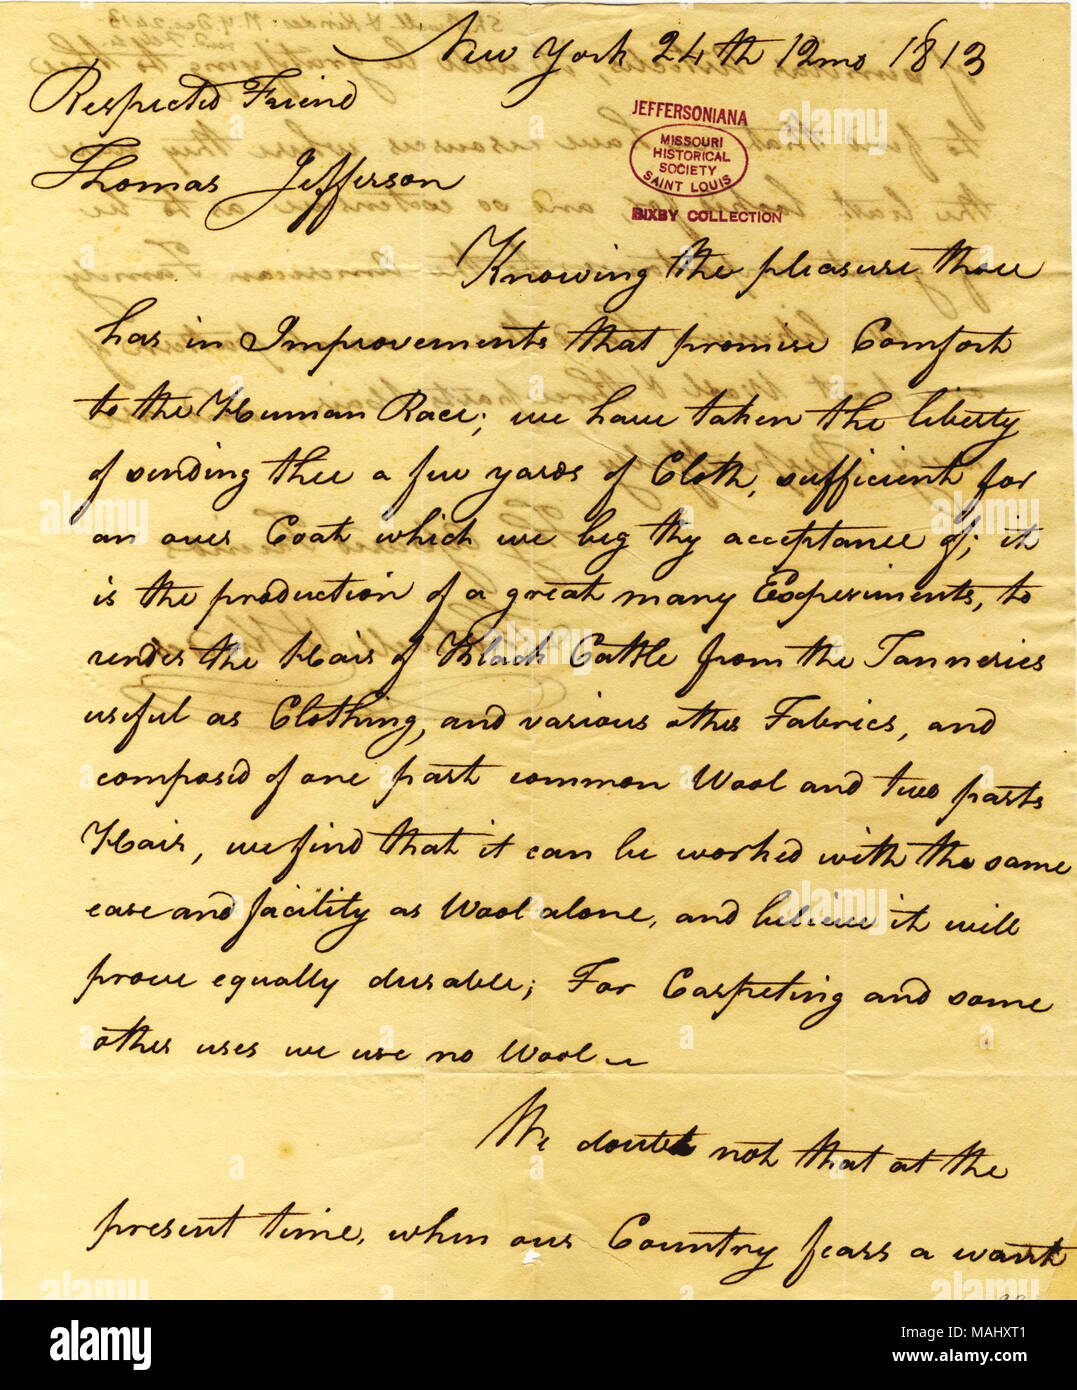 New York 24th 12mo 1813
Respected Friend
Thomas Jefferson
JEFFERSONIANA
MISSOURI
HISTORICAL
SOCIETY
SAINT LOUIS
BIXBY COLLECTION
Knowing the pleasure thou
has in Improvements that promise Comfort
to the Human Race; we have taken the liberty
of sending thee a few yards of Cloth, sufficient for
an over Coat which we beg thy acceptance of; it
is the production of a great many Experiments, to
render the Hair of Black Cattle from the Tanneries
useful as Clothing, and various other Fabrics, and
composed of one part common Wool and two parts
Hair, we find that it can be worked with the same
ease and facility as Wool alone, and believe it will
prove equally durable; For Carpeting and some
other uses we use no Wool
We doubt not that at the
present time, when our Country fears a want
alamy
Image ID: MAHXT1
www.alamy.com